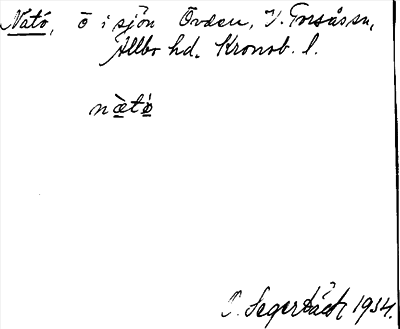 Natö, ö i sjön Örden, V. Torsåssn,
Allbo hd. Kronob. l.
nàtö́
O. Segerbäck 1934.